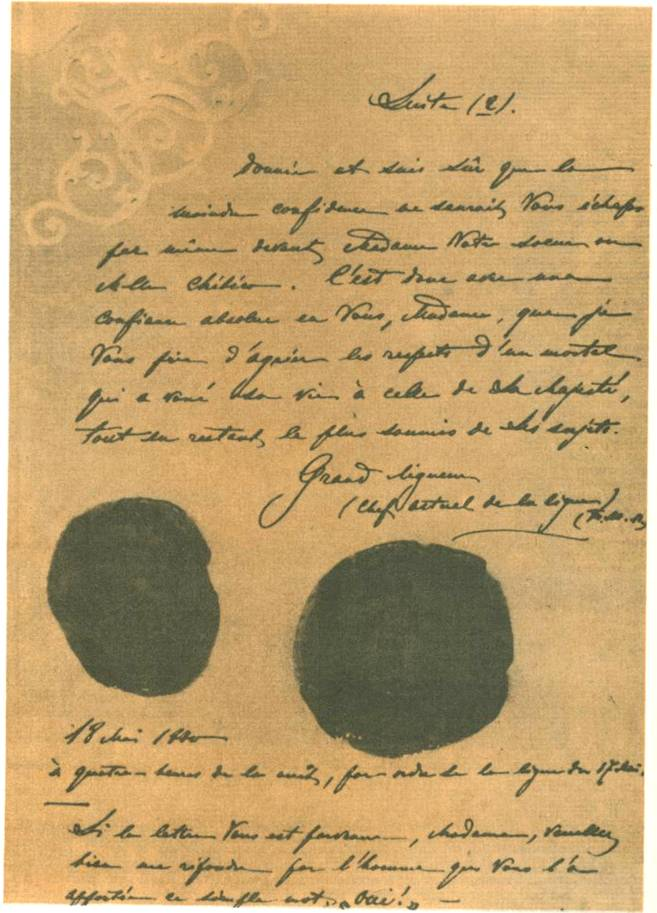 Suite (2).
donnée et suis sûr que la
moindre confidence ne saurait Vous échapper
par même devant Madame Votre soeur ou
M-lle Chébéko. C'est donc avec une
confiance absolue en Vous, Madame, que je
Vous prie d'agréer les respects d'un mortel
qui a voué sa vie à celle de Sa Majesté,
tout en restant le plus soumis de Ses sujets.
Grand ligueur
(chef actuel de la ligue)
18 Mai 1880
à quatre heures de la nuit, par ordre de la ligue du 17 Mai.
Si la lettre Vous est parvenue, Madame, veuillez
bien me répondre par l'homme qui Vous l'a
apportée ce simple mot: „Oui!"